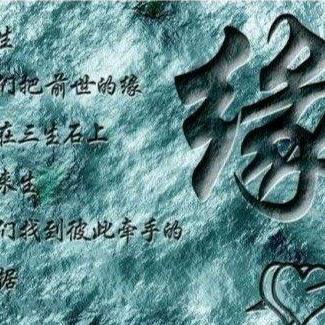 生
们把前世的缘
在三生石上
来生
们找到彼此牵手的
据
缘